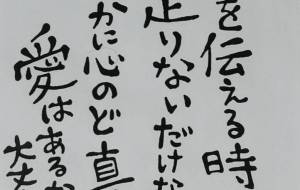 を伝える時
足りないだけな
かに心のど真
愛はあるか
大丈